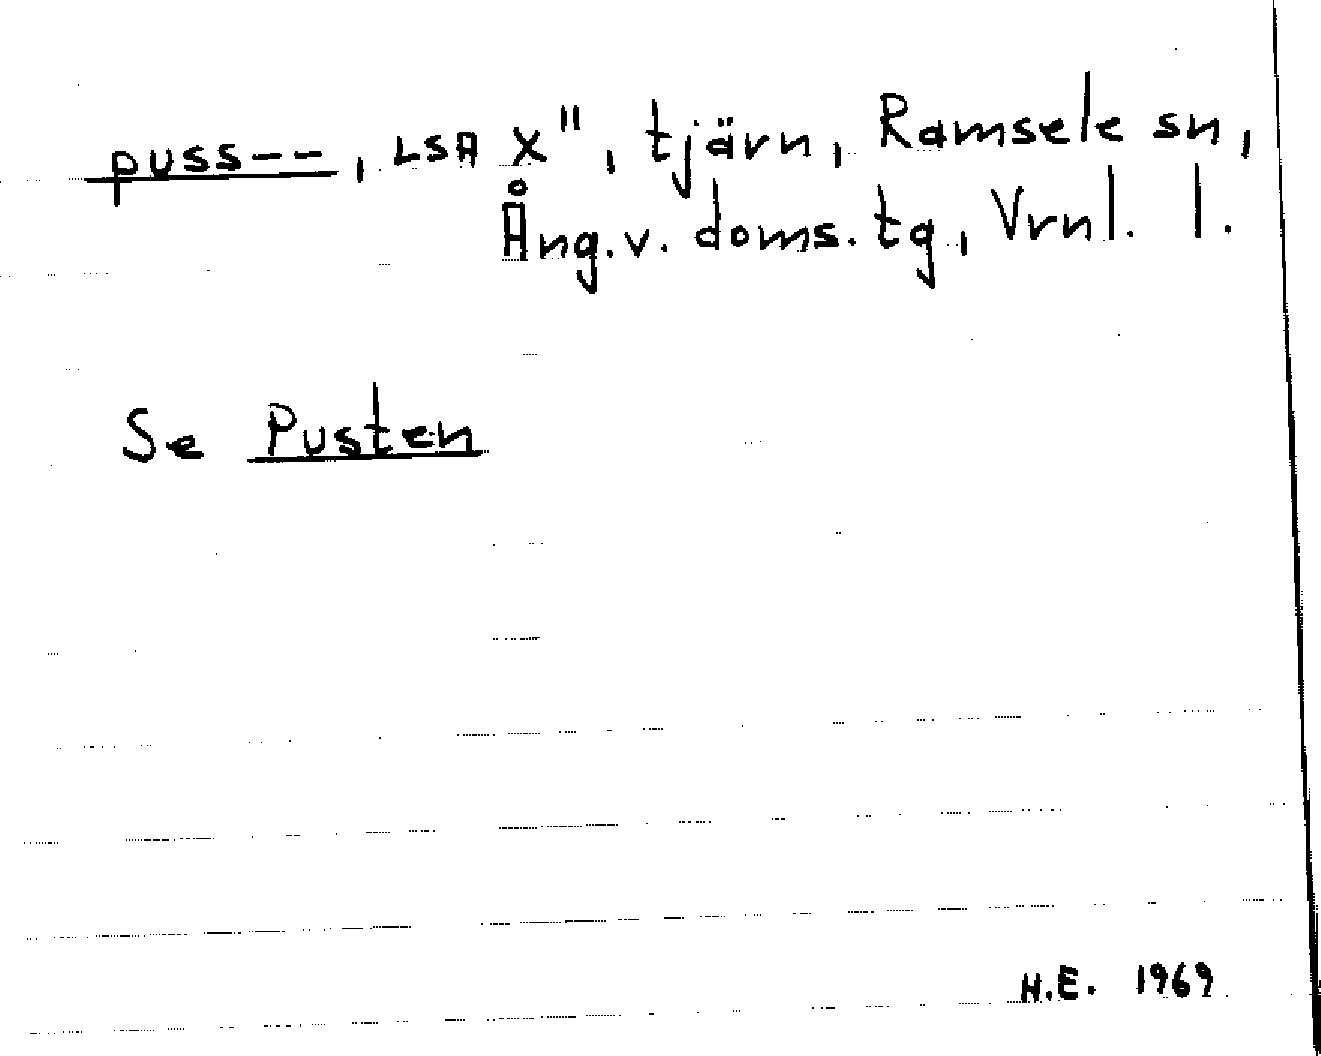 puss--, LSA X", tjärn, Ramsele sn,
Ång.v. doms.tg, Vrnl. l.
Se Pusten
H.E. 1969